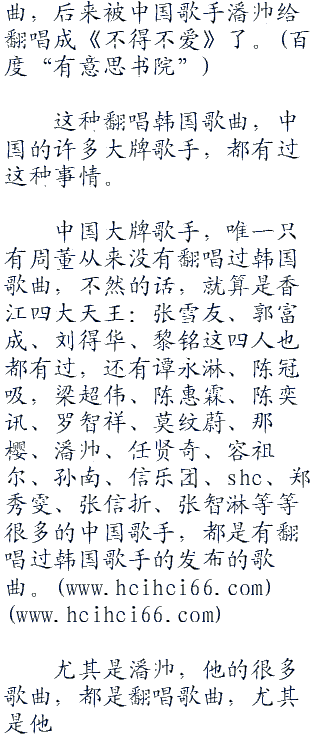 曲，后来被中国歌手潘帅给
翻唱成《不得不爱》了。(百
度“有意思书院”)
这种翻唱韩国歌曲，中
国的许多大牌歌手，都有过
这种事情。
中国大牌歌手，唯一只
有周董从来没有翻唱过韩国
歌曲，不然的话，就算是香
江四大天王：张雪友、郭富
成、刘得华、黎铭这四人也
都有过，还有谭永淋、陈冠
吸，梁超伟、陈惠霖、陈奕
讯、罗智祥、莫纹蔚、那
樱、潘帅、任贤奇、容祖
尔、孙南、信乐团、shc、郑
秀雯、张信折、张智淋等等
很多的中国歌手，都是有翻
唱过韩国歌手的发布的歌
曲。(www.hcihci66.com)
(www.hcihci66.com)
尤其是潘帅，他的很多
歌曲，都是翻唱歌曲，尤其
是他